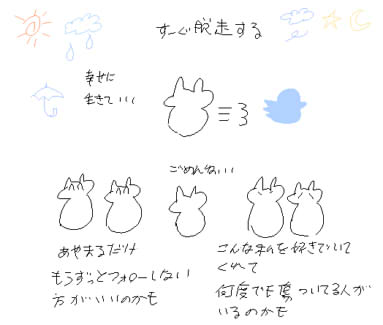 すーぐ脱走する
幸せに
生きていく
ごめんねいい
あやまるだけ
もうずっとフォローしない
方がいいのかも
こんな私を好きでいて
くれて
何度でも傷ついてる人が
いるのかも